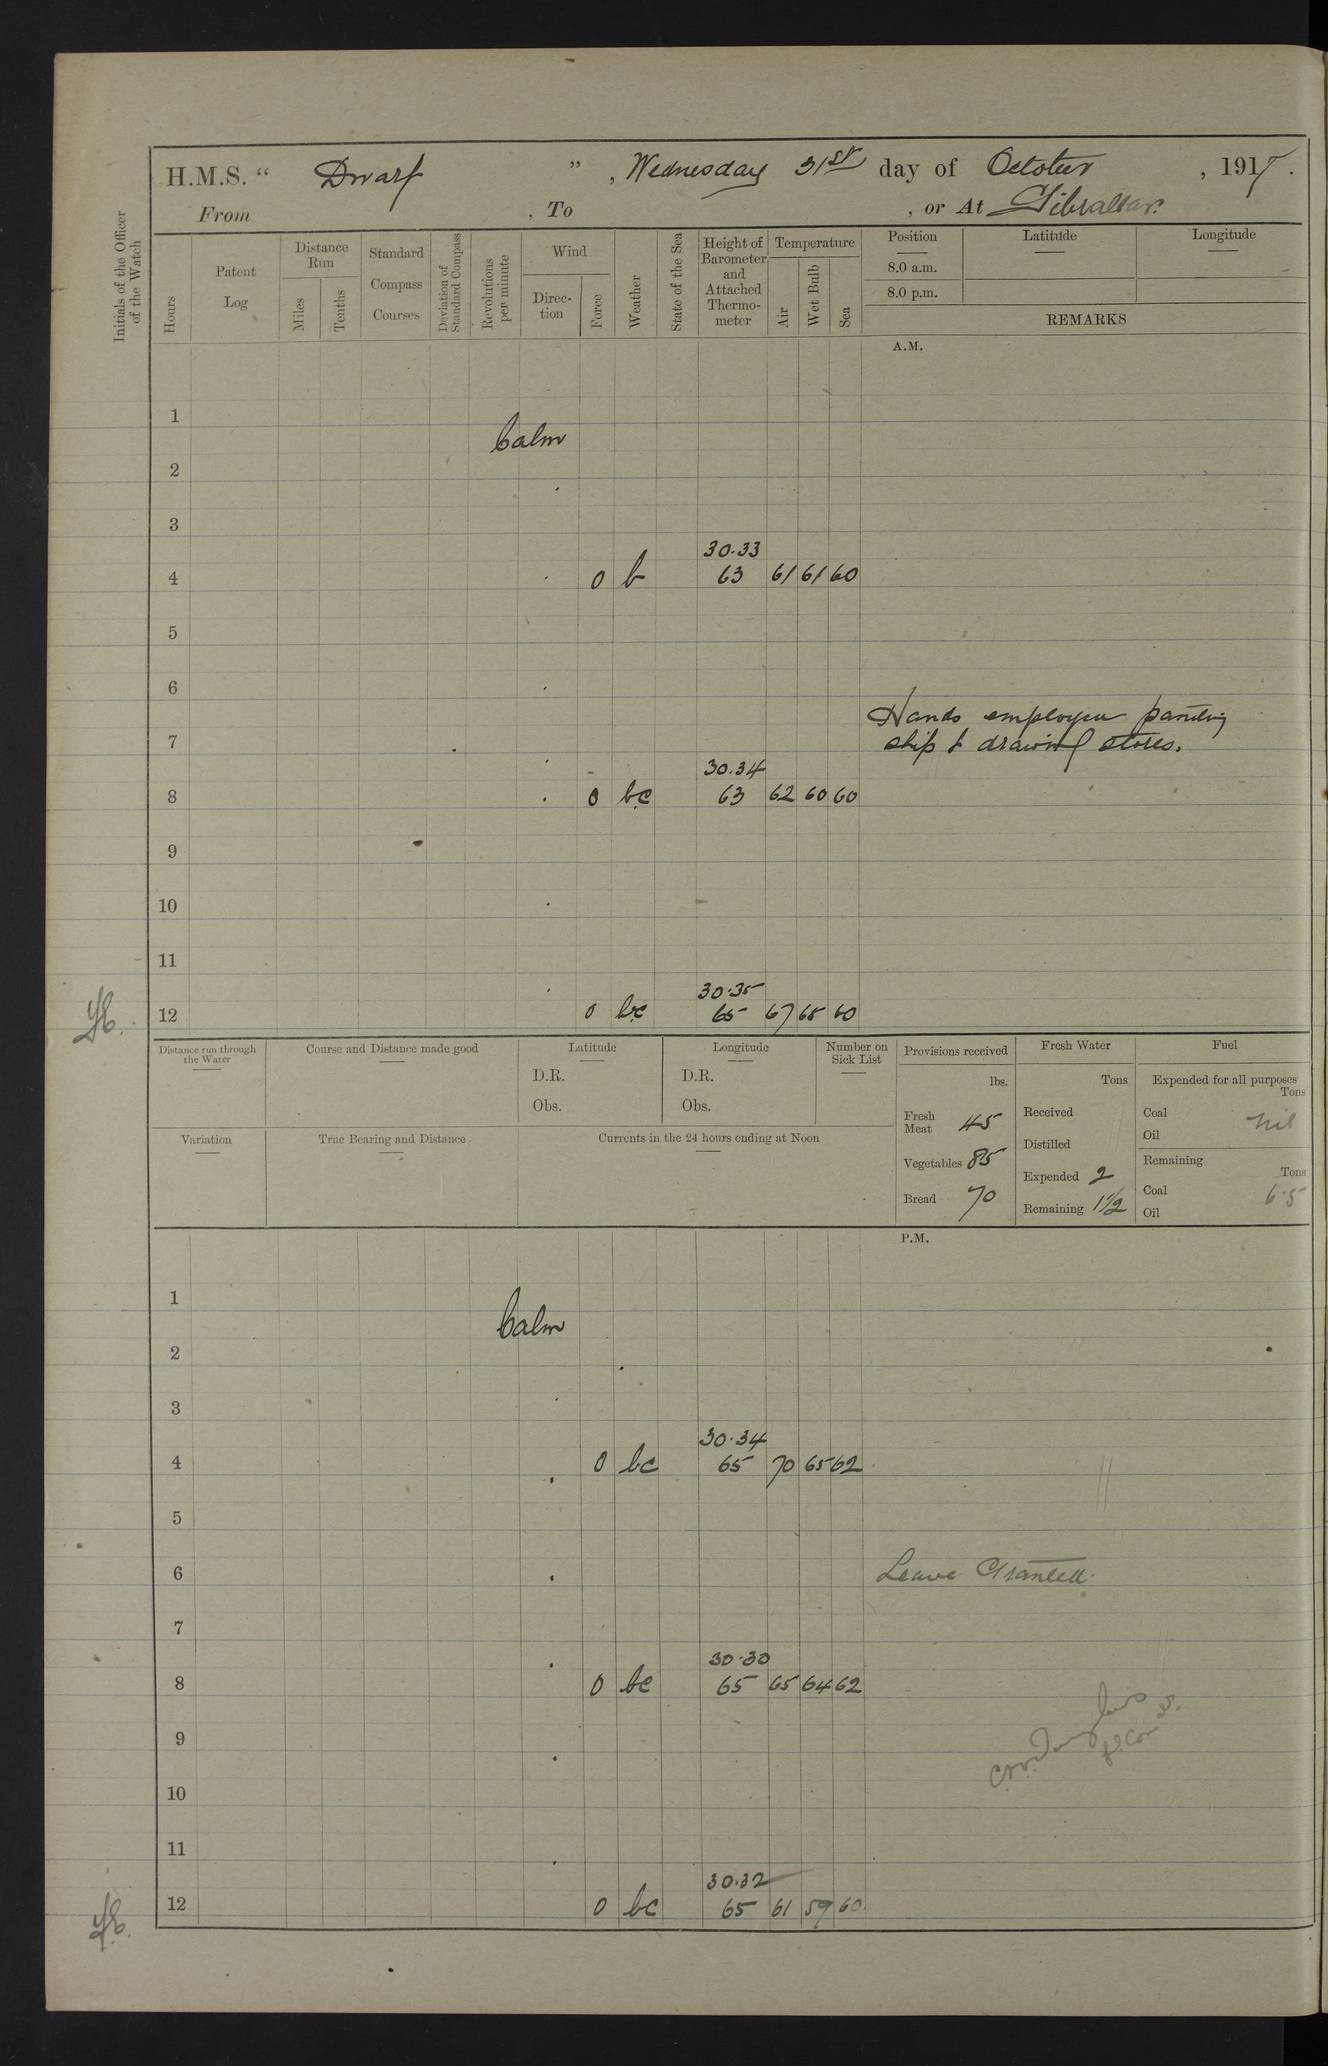 H.M.S. “ Dwarf ” , Wednesday 31st day of October , 1917.
From , To , or At Gibraltar.
Initials of the Officer of the Watch
Hours
Patent Log
Distance Run
Miles
Tenths
Standard Compass Courses
Deviation of Standard Compass
Revolutions per minute
Wind
Direction
Force
Weather
State of the Sea
Height of Barometer and Attached Thermometer
Temperature
Air
Wet Bulb
Sea
Position Latitude Longitude
8.0 a.m.
8.0 p.m.
REMARKS
A.M.
1
Calm
2
3
30.33
4 0 b 63 61 61 60
5
6
Hands employed painting
7 ship & drawing stores.
30.34
8 0 bc 63 62 60 60
9
10
11
30.35
12 0 bc 65 67 65 60
Distance run through the Water
Course and Distance made good
Latitude
D.R.
Obs.
Longitude
D.R.
Obs.
Number on Sick List
Variation
True Bearing and Distance
Currents in the 24 hours ending at Noon
Provisions received
lbs.
Fresh Meat 45
Vegetables 85
Bread 70
Fresh Water
Tons
Received
Distilled
Expended 2
Remaining 1½
Fuel
Expended for all purposes
Tons
Coal nil
Oil
Remaining
Tons
Coal 6.5
Oil
P.M.
1
Calm
2
3
30.34
4 0 bc 65 70 65 62
5
6 Leave Granted.
7
30.30
8 0 bc 65 65 64 62
9
10
11
30.32
12 0 bc 65 61 59 60